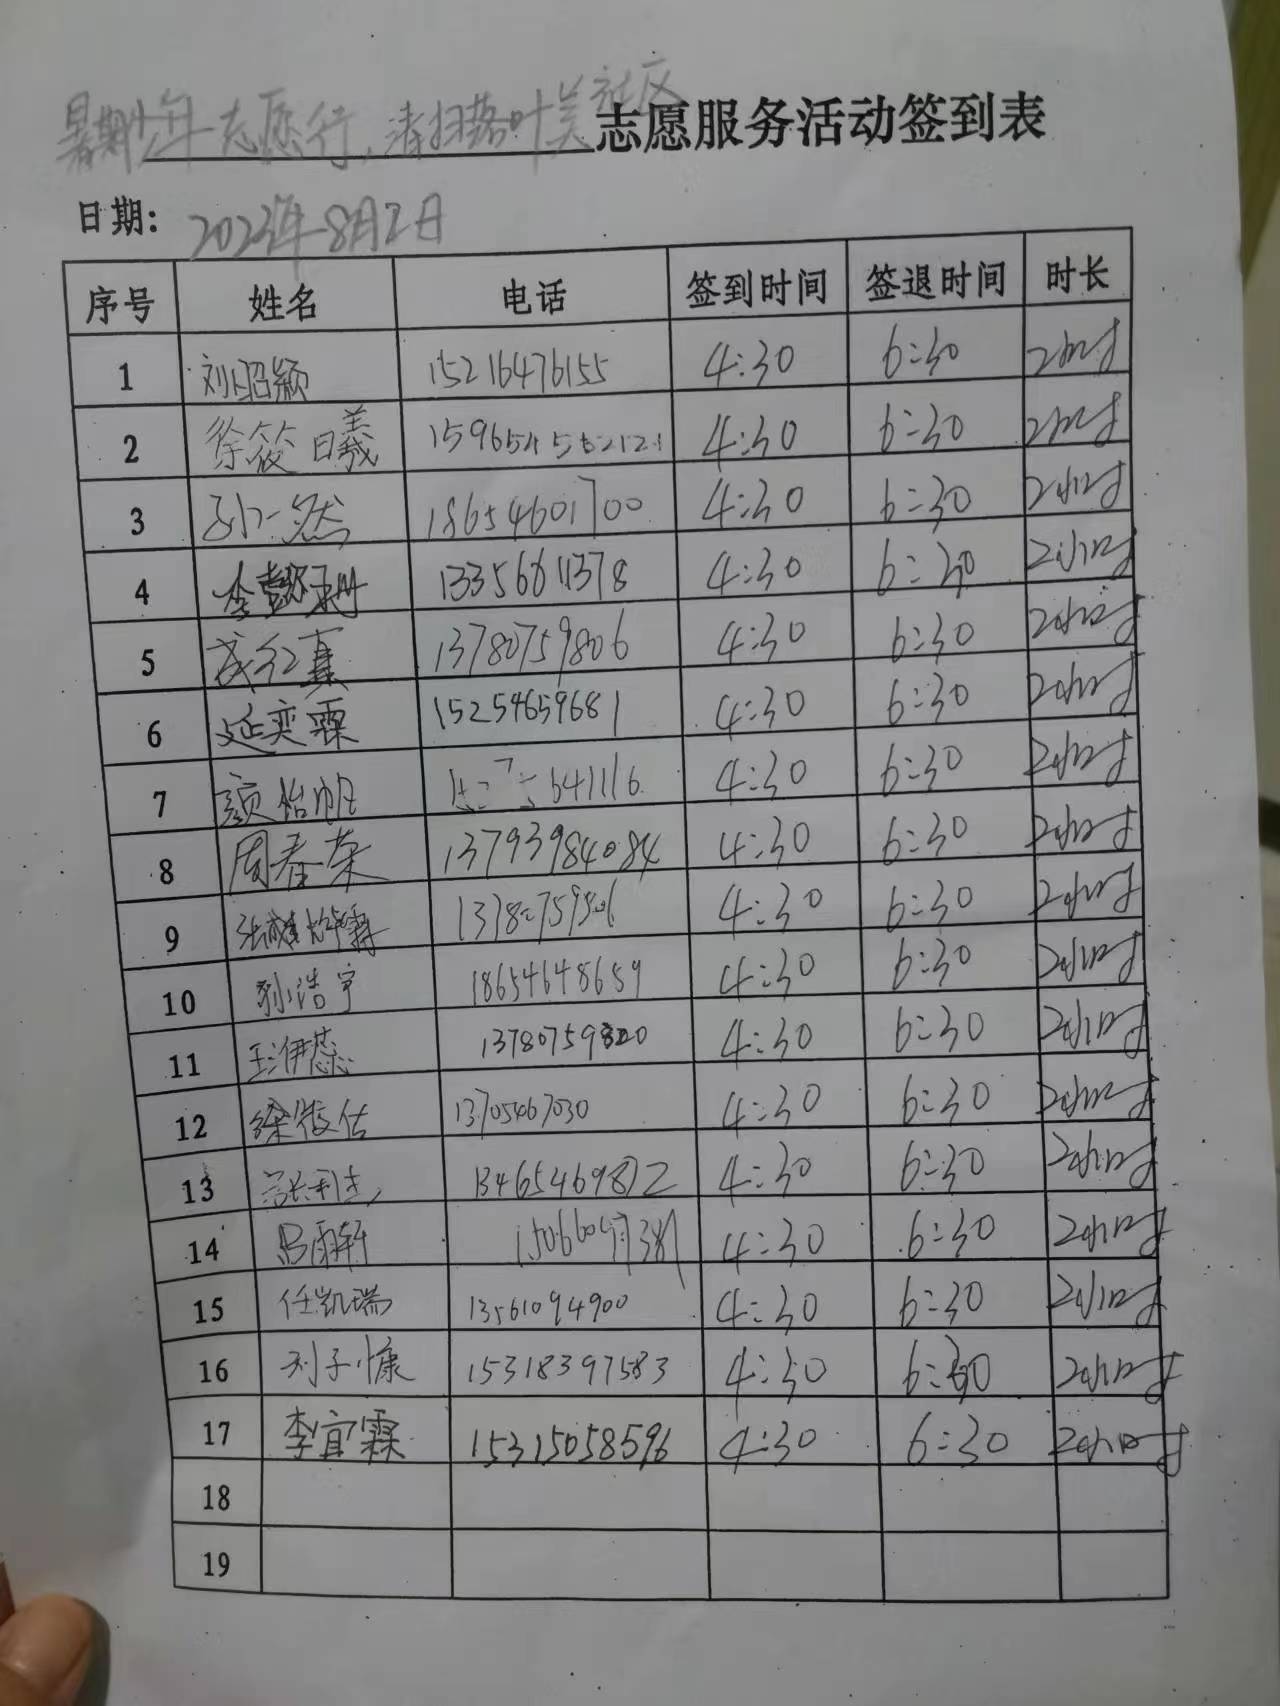 暑期少年志愿行，清扫落叶美社区志愿服务活动签到表
日期： 2023年8月2日
序号 姓名 电话 签到时间 签退时间 时长
1 刘昭颖 15216476155 4:30 6:30 2小时
2 徐筱曦 4:30 6:30 2小时
3 孙一然 18654601700 4:30 6:30 2小时
4 李懿珊 13356611378 4:30 6:30 2小时
5 13780759806 4:30 6:30 2小时
6 延奕霖 15254659681 4:30 6:30 2小时
7 颜怡帆 4:30 6:30 2小时
8 周春荣 13793984084 4:30 6:30 2小时
9 4:30 6:30 2小时
10 孙浩宇 18654648659 4:30 6:30 2小时
11 王伊蕊 4:30 6:30 2小时
12 13705467030 4:30 6:30 2小时
13 13465469872 4:30 6:30 2小时
14 吕雨轩 4:30 6:30 2小时
15 任凯瑞 13561094900 4:30 6:30 2小时
16 刘子慷 15318397583 4:30 6:30 2小时
17 李宜霖 15315058596 4:30 6:30 2小时
18
19